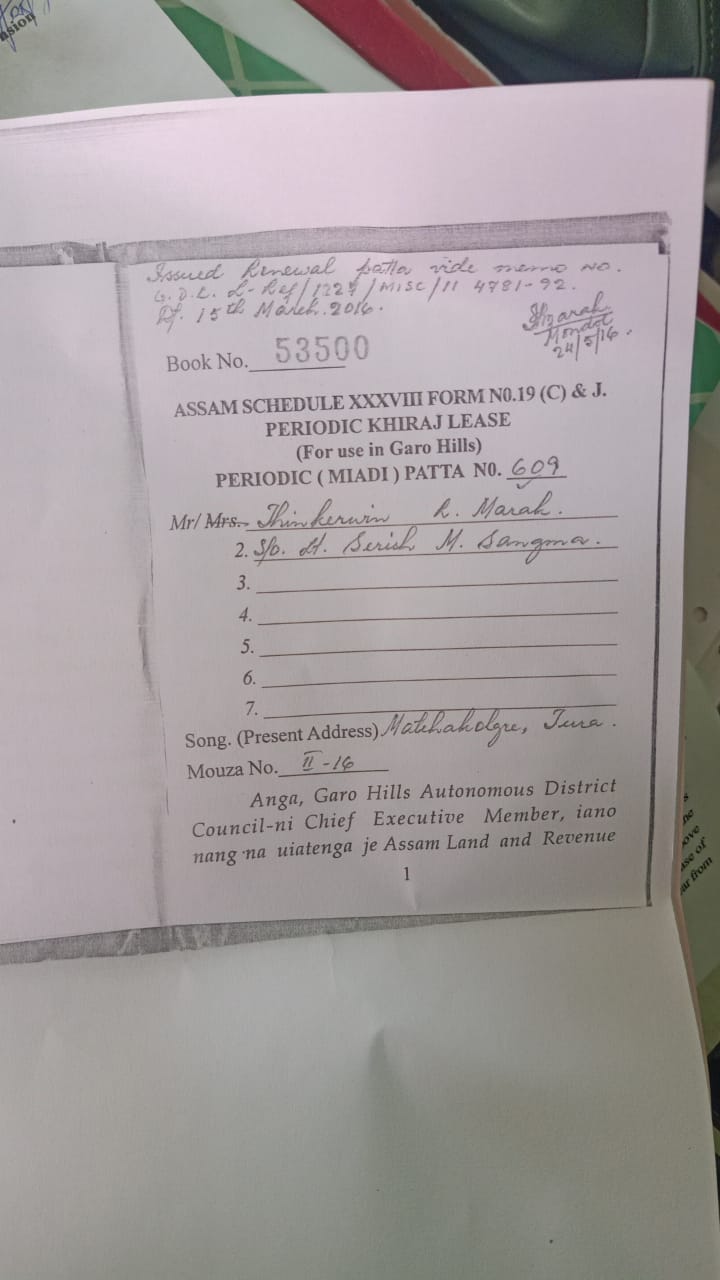 nsion
Issued Renewal patta vide memo NO.
G.D.C. L-Ref/1227/MISC/11 4781-92.
Df. 15th March. 2016.
Marak
Mondol
24/5/16.
Book No. 53500
ASSAM SCHEDULE XXXVIII FORM N0.19 (C) & J.
PERIODIC KHIRAJ LEASE
(For use in Garo Hills)
PERIODIC ( MIADI ) PATTA N0. 609
Mr/ Mrs. Thinkerwin R. Marak.
2. S/o. Lt. Serish M. Sangma.
3.
4.
5.
6.
7.
Song. (Present Address) Matchakolgre, Tura.
Mouza No. II-16
Anga, Garo Hills Autonomous District
Council-ni Chief Executive Member, iano
nang·na uiatenga je Assam Land and Revenue
1
s
he
ove
use of
ur from